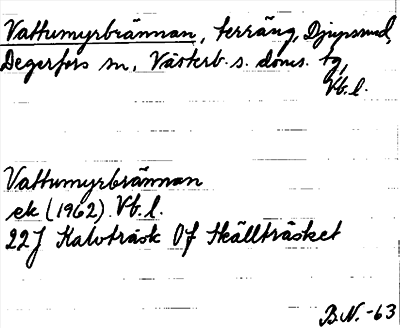 Vattumyrbrännan, terräng, Djupsund,
Degerfors sn, Västerb. s. doms. tg,
Vb. l.
Vattumyrbrännan
ek (1962). Vb. l.
22J Kalvträsk 0f Skällträsket
B.N. -63